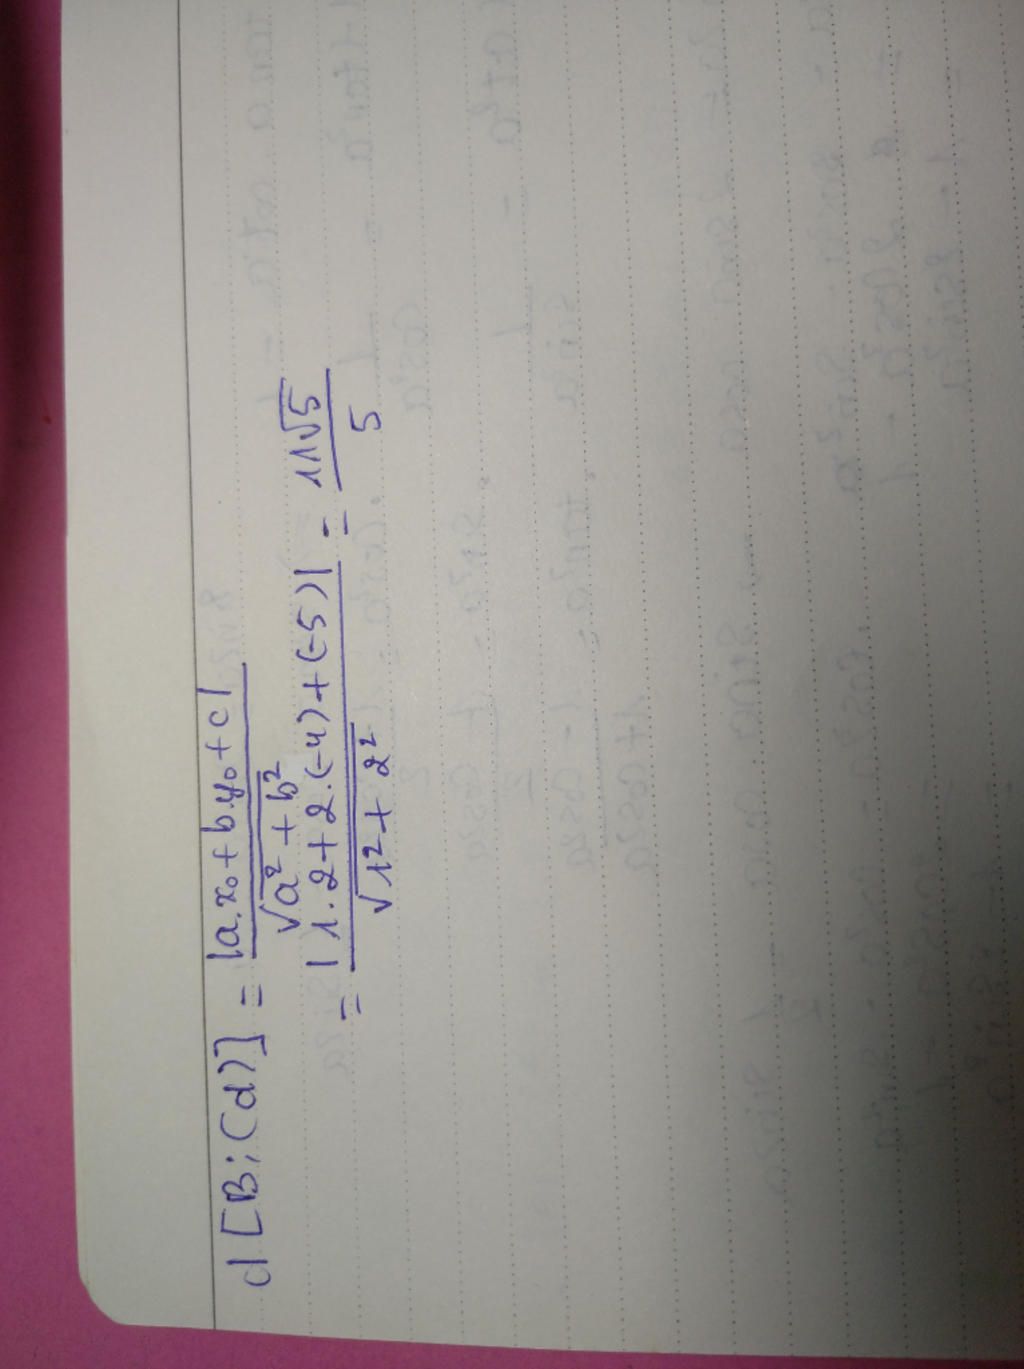 d[B;(d)] = |a.x₀+b.y₀+c| / √a²+b²
= |1.2+2.(-4)+(-5)| / √1²+2² = 11√5 / 5